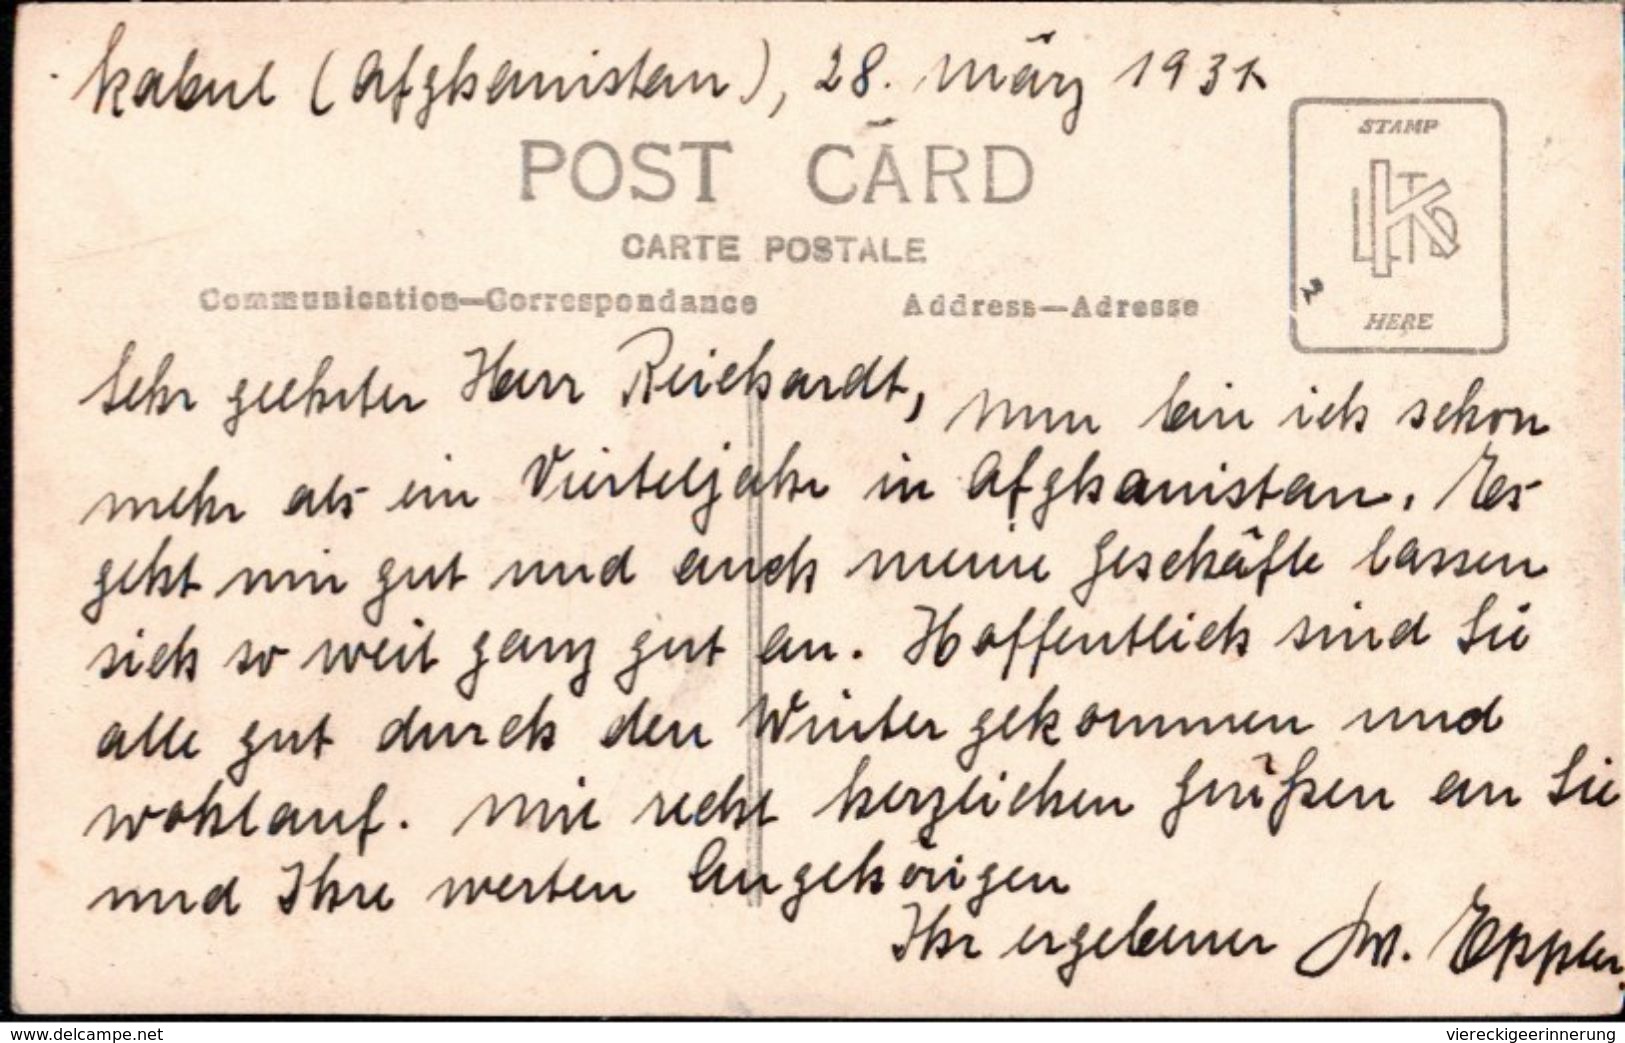 Kabul (Afghanistan), 28. März 1931
POST CARD
CARTE POSTALE
Communication—Correspondance
Address—Adresse
STAMP
HERE
Sehr geehrter Herr Reichardt, nun bin ich schon
mehr als ein Vierteljahr in Afghanistan. Es
geht mir gut und auch meine Geschäfte lassen
sich so weit ganz gut an. Hoffentlich sind Sie
alle gut durch den Winter gekommen und
wohlauf. Mit recht herzlichen Grüßen an Sie
und Ihre werten Angehörigen
Ihr ergebener Eppler.
www.delcampe.net
viereckigeerinnerung